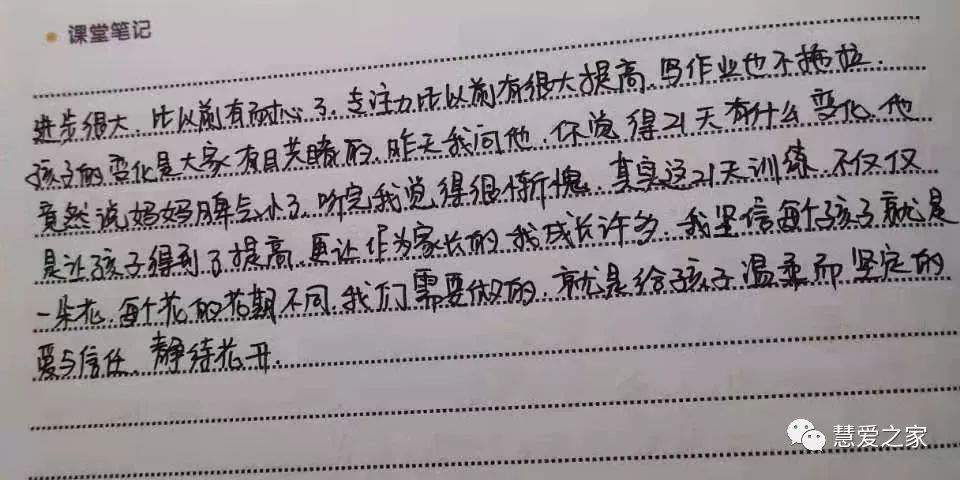 课堂笔记
进步很大,比以前有耐心了,专注力比以前有很大提高,写作业也不拖拉.
孩子的变化是大家有目共睹的,昨天我问他,你觉得21天有什么变化,他
竟然说妈妈脾气小了,听完我觉得很惭愧,其实这21天训练,不仅仅
是让孩子得到了提高,更让作为家长的我成长许多,我坚信每个孩子就是
一朵花,每个花的花期不同,我们需要做的,就是给孩子温柔而坚定的
爱与信任,静待花开.
慧爱之家